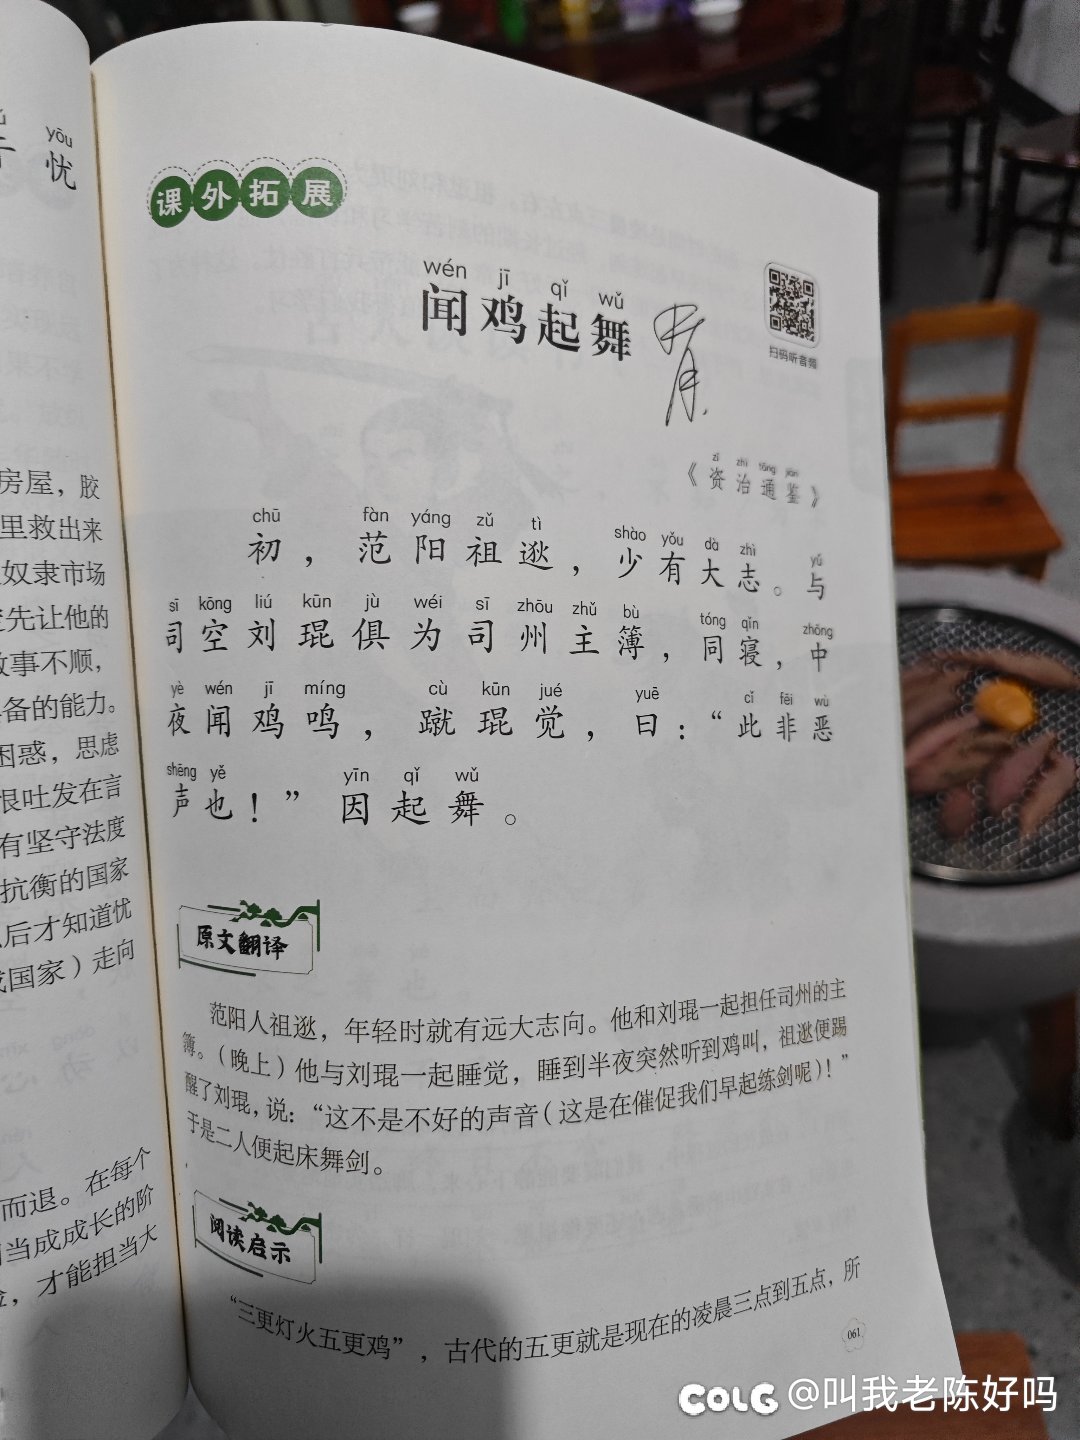 yōu
忧
房屋，胶
里救出来
奴隶市场
先让他的
故事不顺，
备的能力。
困惑，思虑
恨吐发在言
有坚守法度
抗衡的国家
后才知道忧
国家）走向
而退。在每个
当成成长的阶
，才能担当大
课外拓展
wén jī qǐ wǔ
闻鸡起舞
扫码听音频
zī zhì tōng jiàn
《资治通鉴》
chū fàn yáng zǔ tì shào yǒu dà zhì yǔ
初，范阳祖逖，少有大志。与
sī kōng liú kūn jù wéi sī zhōu zhǔ bù tóng qǐn zhōng
司空刘琨俱为司州主簿，同寝，中
yè wén jī míng cù kūn jué yuē cǐ fēi wù
夜闻鸡鸣，蹴琨觉，曰：“此非恶
shēng yě yīn qǐ wǔ
声也！”因起舞。
原文翻译
范阳人祖逖，年轻时就有远大志向。他和刘琨一起担任司州的主
簿。（晚上）他与刘琨一起睡觉，睡到半夜突然听到鸡叫，祖逖便踢
醒了刘琨，说：“这不是不好的声音（这是在催促我们早起练剑呢）！”
于是二人便起床舞剑。
阅读启示
“三更灯火五更鸡”，古代的五更就是现在的凌晨三点到五点，所
061
COLG @叫我老陈好吗